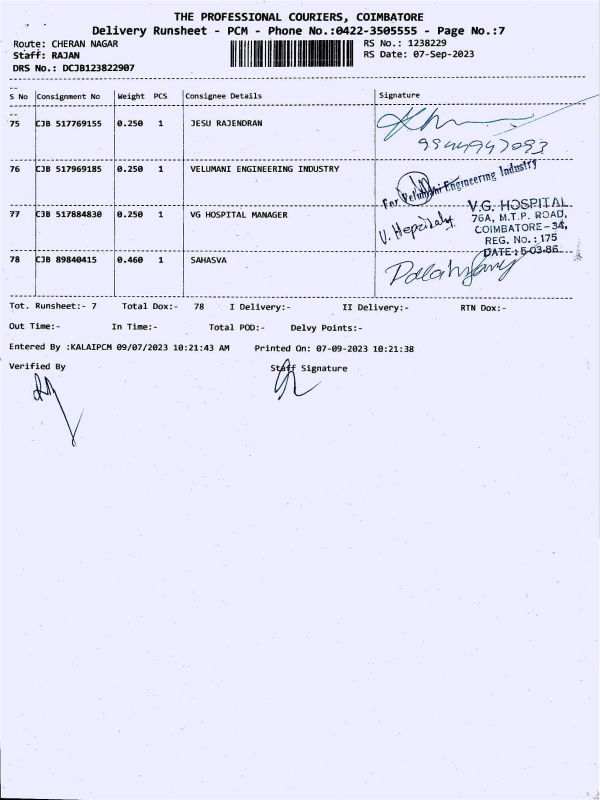 THE PROFESSIONAL COURIERS, COIMBATORE
Delivery Runsheet - PCM - Phone No.:0422-3505555 - Page No.:7
Route: CHERAN NAGAR RS No.: 1238229
Staff: RAJAN RS Date: 07-Sep-2023
DRS No.: DCJB123822907
S No Consignment No Weight PCS Consignee Details Signature
75 CJB 517769155 0.250 1 JESU RAJENDRAN
76 CJB 517969185 0.250 1 VELUMANI ENGINEERING INDUSTRY
For Velumani Engineering Industry
77 CJB 517884830 0.250 1 VG HOSPITAL MANAGER
V.G. HOSPITAL
76A, M.T.P. ROAD,
COIMBATORE-34,
REG. No.: 175
DATE: 5-03-86
78 CJB 89840415 0.460 1 SAHASVA
Tot. Runsheet:- 7 Total Dox:- 78 I Delivery:- II Delivery:- RTN Dox:-
Out Time:- In Time:- Total POD:- Delvy Points:-
Entered By :KALAIPCM 09/07/2023 10:21:43 AM Printed On: 07-09-2023 10:21:38
Verified By Staff Signature